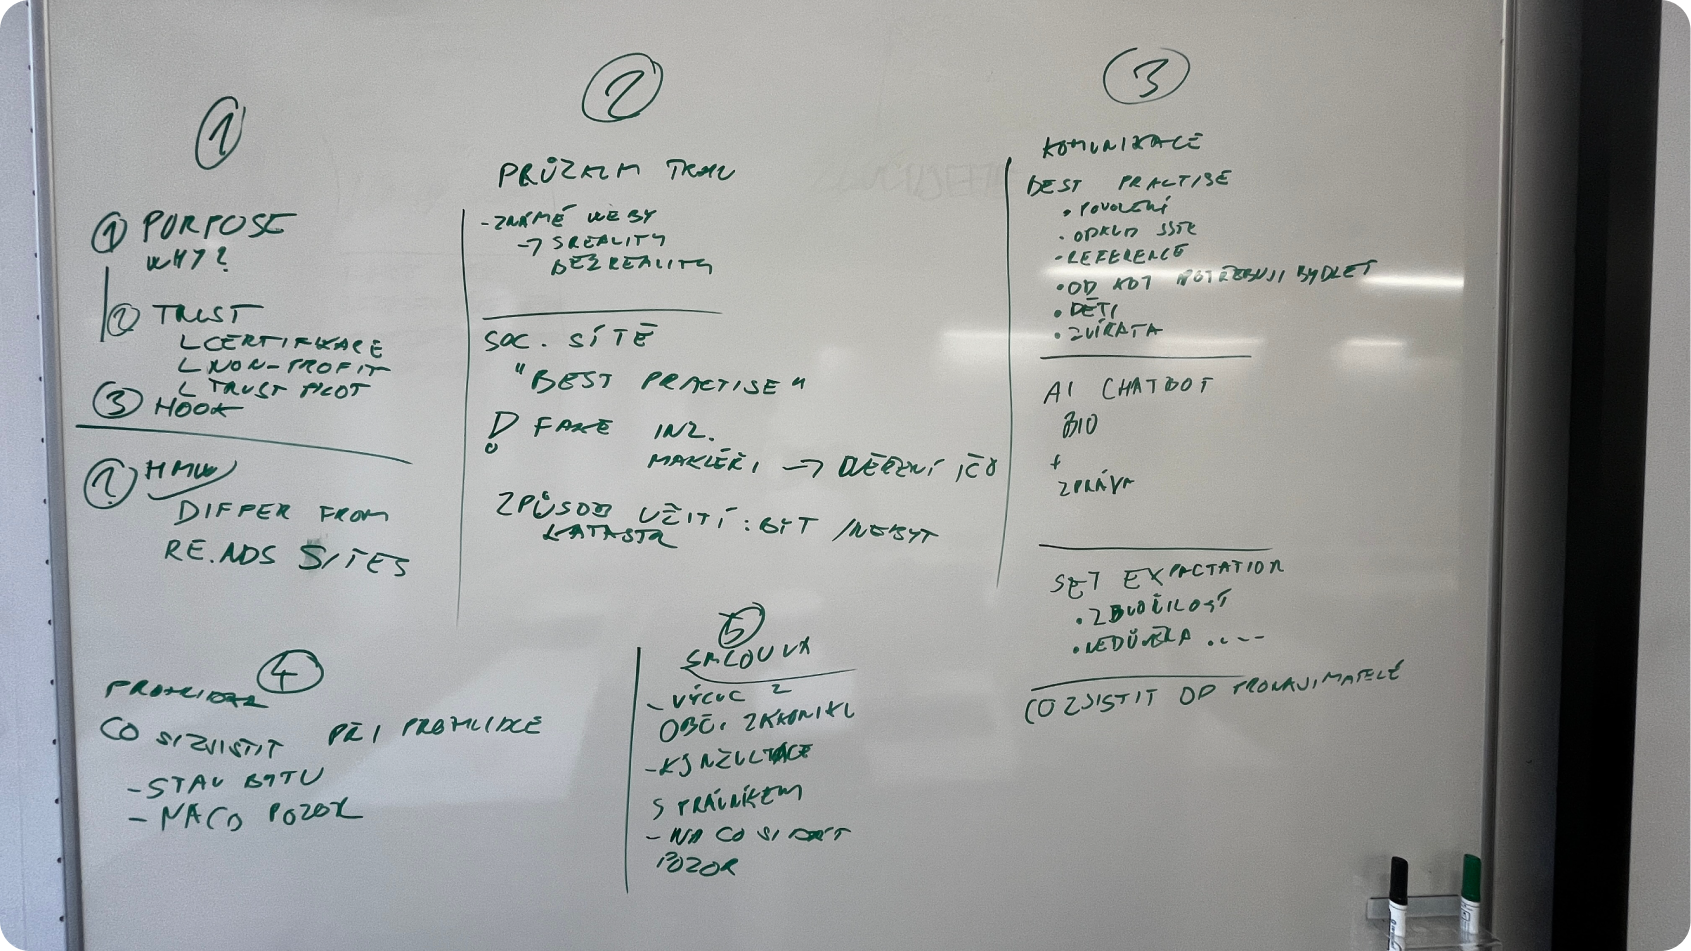 1
1 PURPOSE
WHY?
2 TRUST
CERTIFIKACE
NON-PROFIT
TRUST PILOT
3 HOOK
? HMW
DIFFER FROM
RE.ADS SITES
2
PRŮZKUM TRHU
- ZNÁMÉ WEBY
→ SREALITY
BEZREALITY
SOC. SÍTĚ
"BEST PRACTISE"
! FAKE INZ.
MAKLÉŘI → OVĚŘENÍ IČO
ZPŮSOB UŽITÍ: BYT / NEBYT
KATASTR
3
KOMUNIKACE
BEST PRACTISE
• POVOLENÍ
• ODKUD JSTE
• REFERENCE
• OD KDY POTŘEBUJI BYDLET
• DĚTI
• ZVÍŘATA
AI CHATBOT
BIO
+
ZPRÁVA
SET EXPACTATION
• ZDVOŘILOST
• NEDŮVĚRA ....
CO ZJISTIT OD PRONAJIMATELE
4
PROHLIDKA
CO SI ZJISTIT PŘI PROHLIDCE
- STAV BYTU
- NA CO POZOR
5
SMLOUVA
- VÝCUC Z
OBČ. ZÁKONIKU
- KONZULTACE
S PRÁVNÍKEM
- NA CO SI DÁT
POZOR